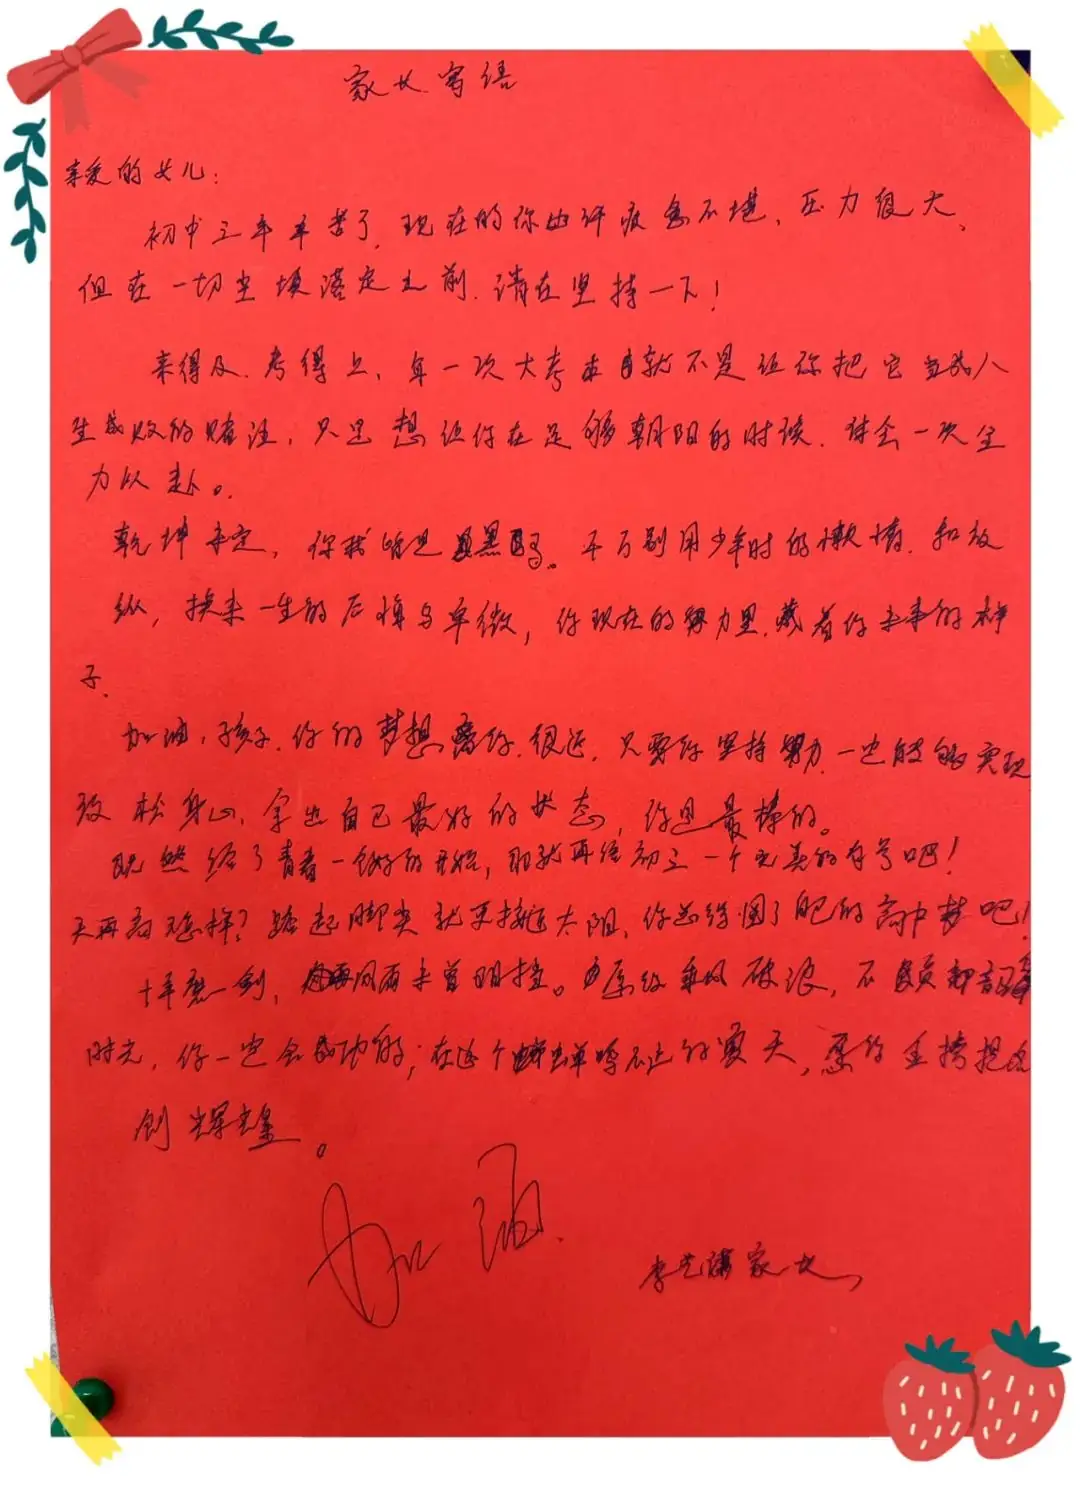 家长寄语
亲爱的女儿：
初中三年辛苦了，现在的你也许疲惫不堪，压力很大，
但在一切尘埃落定之前，请在坚持一下！
来得及，考得上，每一次大考本身就不是让你把它当成人
生成败的赌注，只是想让你在足够朝阳的时候，体会一次全
力以赴。
乾坤未定，你我皆是黑马。千万别用少年时的懒惰，和放
纵，换来一生的后悔与卑微，你现在的努力里，藏着你未来的样
子，
加油，孩子，你的梦想离你很近，只要你坚持努力，一定能够实现
放松身心，拿出自己最好的状态，你是最棒的。
既然给了青春一个好的开始，那就再给初三一个完美的句号吧！
天再高怎样？踮起脚尖就更接近太阳，你总给圆了肥的高中梦吧！
十年磨一剑，风雨未曾阻挡。愿你乘风破浪，不负韶华
时光，你一定会成功的；在这个蝉鸣不止的夏天，愿你金榜提名
创辉煌。
加油
李艺 家长